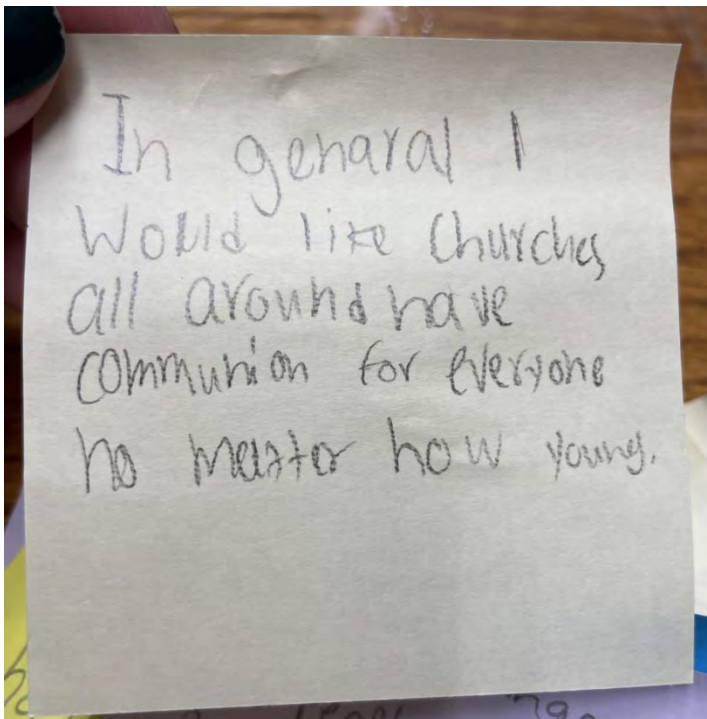 In genaral I
Would like Churches
all around have
communion for everyone
no matter how young.